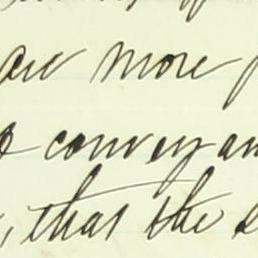 are more
convey an
, that the